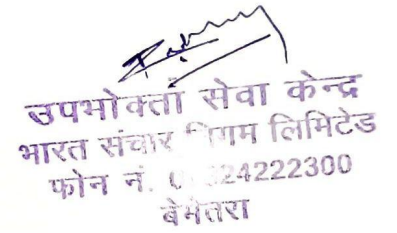 उपभोक्ता सेवा केन्द्र
भारत संचार निगम लिमिटेड
फोन नं. 24222300
बेमेतरा